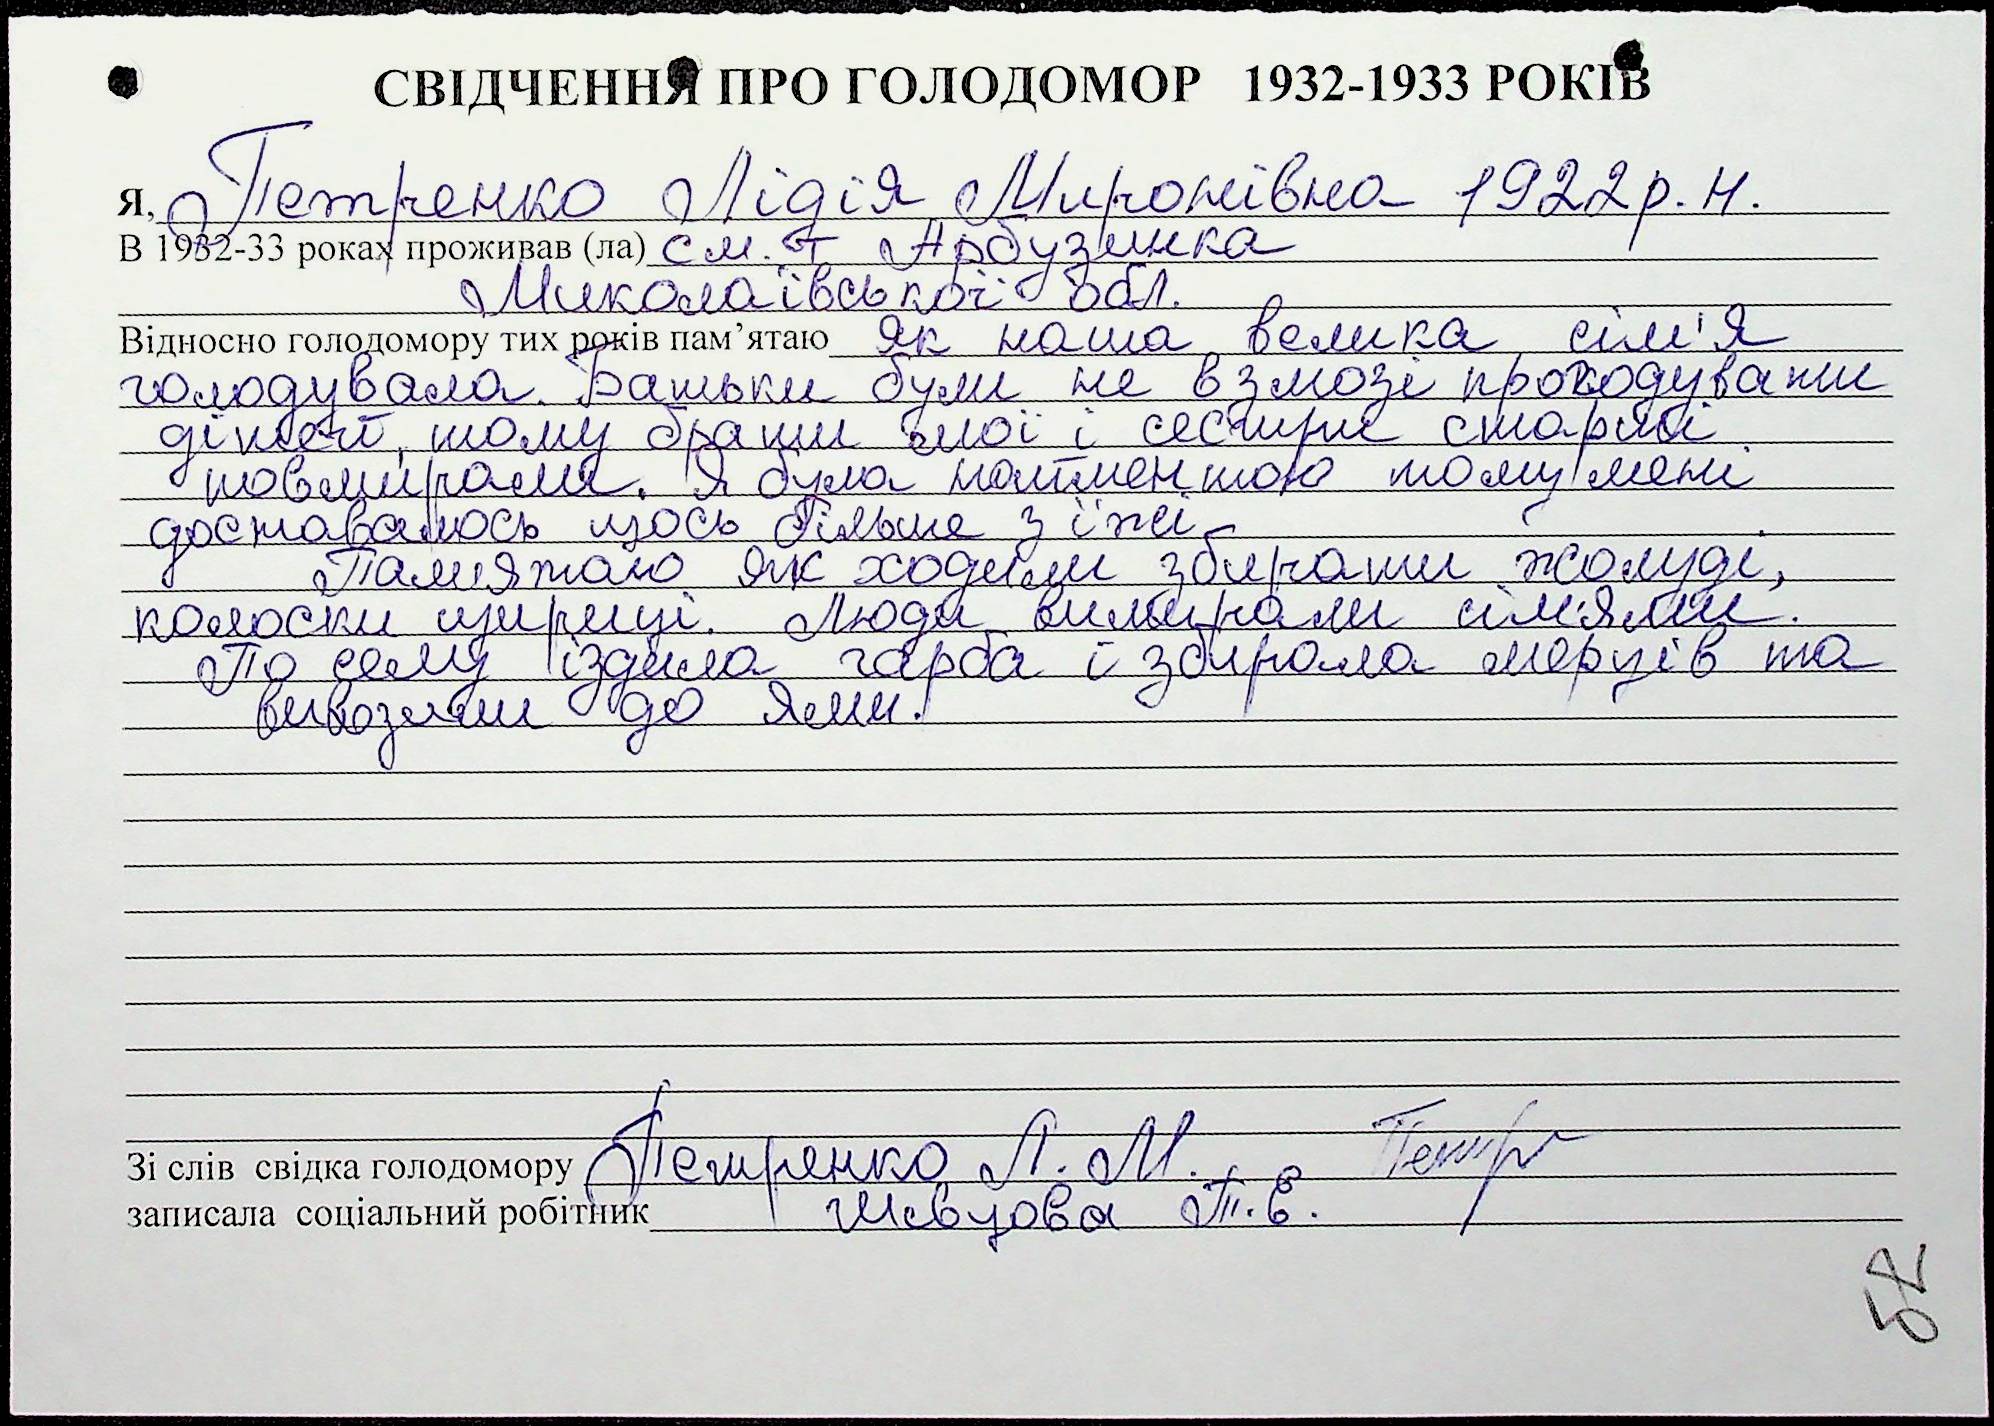 СВІДЧЕННЯ ПРО ГОЛОДОМОР 1932-1933 РОКІВ
Я, Петренко Лідія Миронівна 1922 р. н.
В 1932-33 роках проживав (ла) см. т Арбузинка
Миколаївської обл.
Відносно голодомору тих років пам'ятаю як наша велика сім'я
голодувала. Батьки були не взмозі прогодувати
дітей, тому брати мої і сестри старші
повмирали. Я була найменшою тому мені
доставалось щось більше з їжі.
Памиятаю як ходили збирати жолуді,
колоски щириці. Люди вимирали сім'ями.
По селу їздила гарба і збирала мерців та
вивозили до ями.
Зі слів свідка голодомору Петренко Л. М. Петр
записала соціальний робітник Шевцова Т. Є.
58